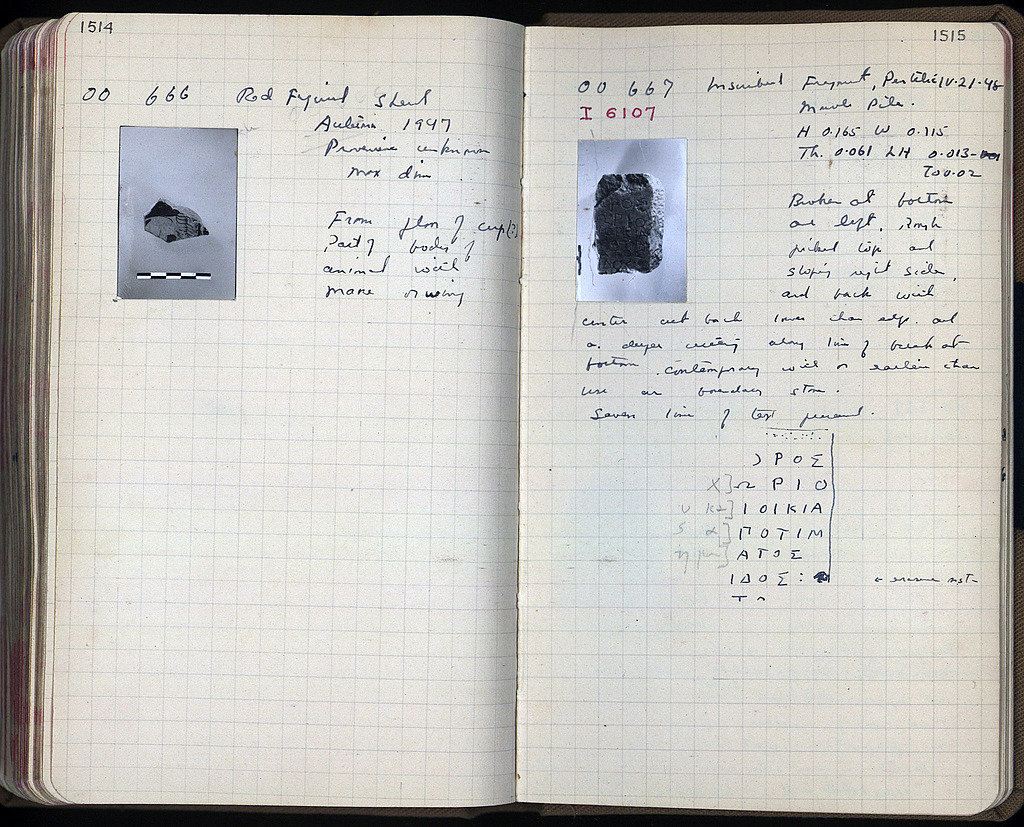 1514
OO 666 Red Figured Sherd
Autumn 1947
Provenience unknown
Max dim
From floor of cup (?)
Part of body of
animal with
mane or wing
1515
OO 667 Inscribed Fragment, IV-21-48
I 6107
Marble Pile.
H 0.165 W 0.115
Th. 0.061 LH 0.013-
To 0.02
Broken at bottom
and left, rough
picked top and
sloping right side,
and back with
center cut back lower than edge and
a deeper cutting along line of break at
bottom. Contemporary with or earlier than
use as boundary stone.
Seven lines of text preserved.
ΟΡΟΣ
Χ]ΩΡΙΟ
υ κα]ΙΟΙΚΙΑ
ς α]ΠΟΤΙΜ
ημ]ΑΤΟΣ
ΙΔΟΣ :